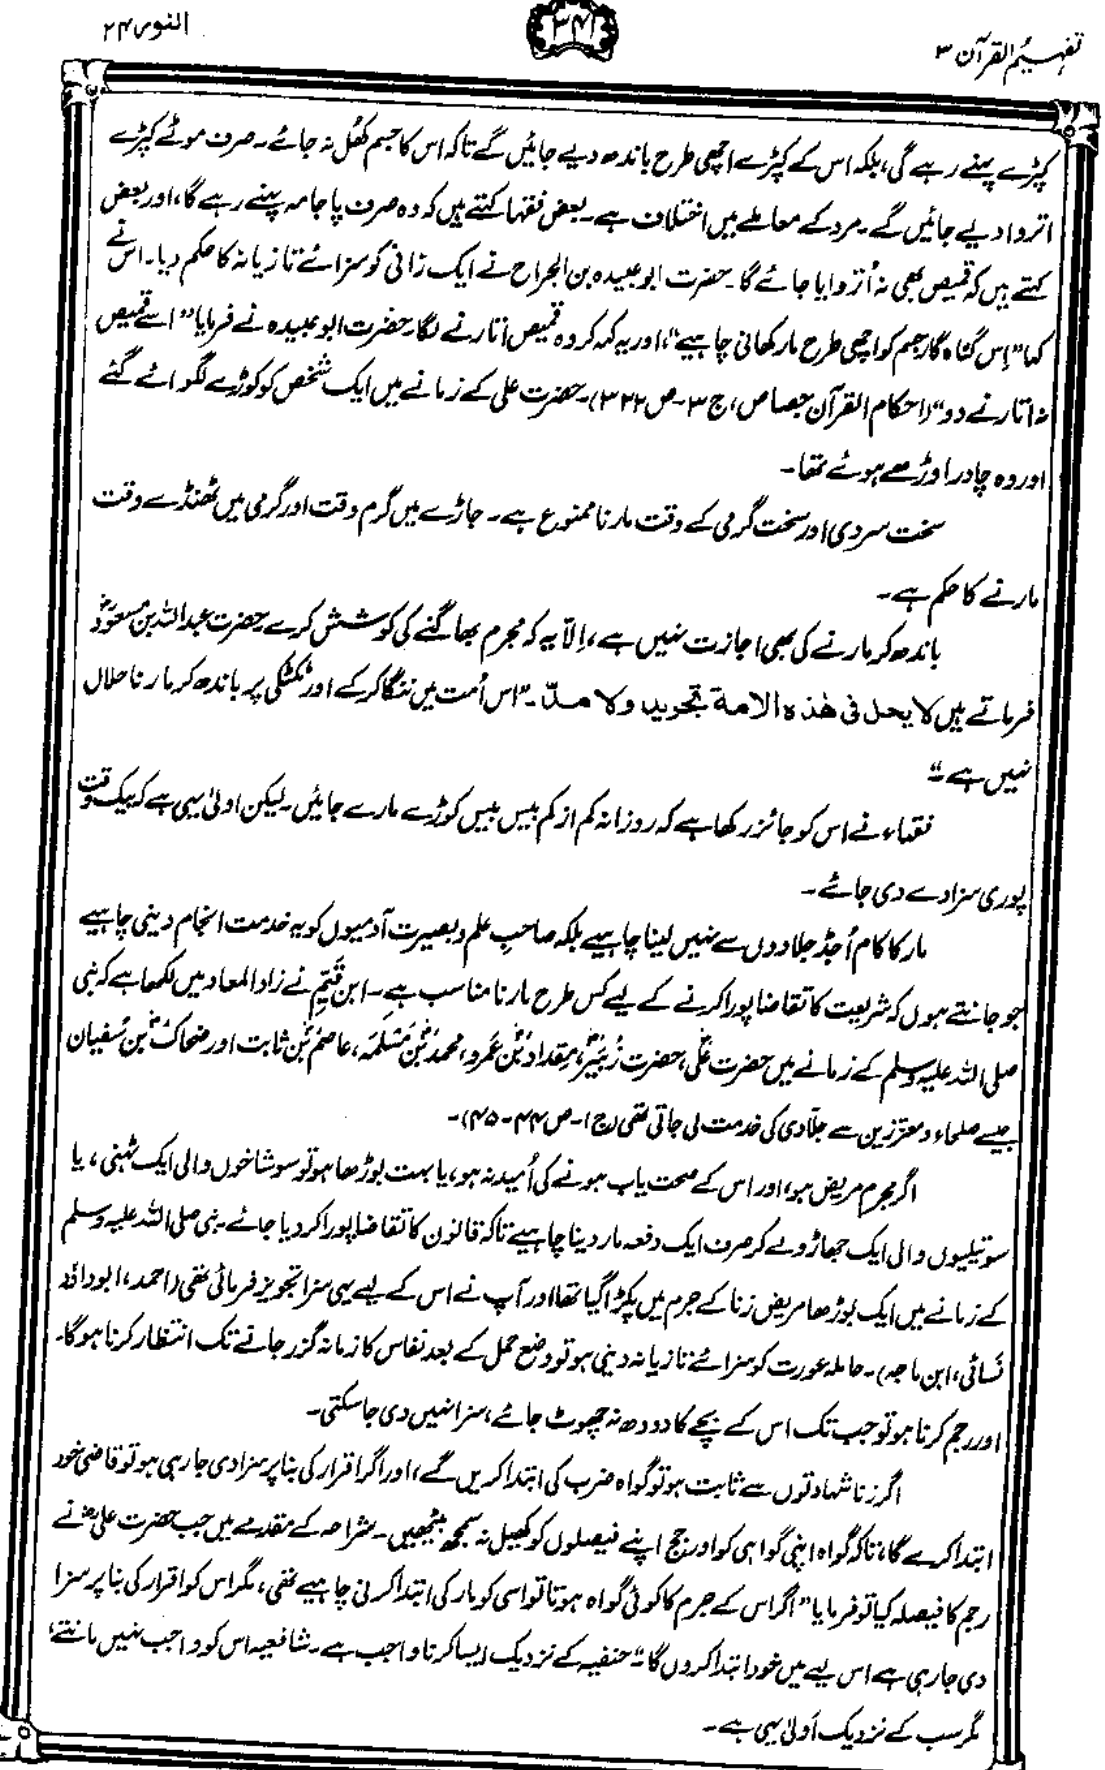 تفہیم القرآن ۳
۳۴۱
النور ۲۴
کپڑے پہنے رہے گی، بلکہ اس کے کپڑے اچھی طرح باندھ دیے جائیں گے تاکہ اس کا جسم کھُل نہ جائے۔ صرف موٹے کپڑے
اتروا دیے جائیں گے۔ مرد کے معاملے میں اختلاف ہے۔ بعض فقہا کہتے ہیں کہ وہ صرف پاجامہ پہنے رہے گا، اور بعض
کہتے ہیں کہ قمیص بھی نہ اُتروایا جائے گا۔ حضرت ابو عبیدہ بن الجراح نے ایک زانی کو سزائے تازیانہ کا حکم دیا۔ اس نے
کہا "اِس گناہ گار جسم کو اچھی طرح مار کھانی چاہیے"، اور یہ کہہ کر وہ قمیص اتارنے لگا۔ حضرت ابو عبیدہ نے فرمایا "اسے قمیص
نہ اتارنے دو" (احکام القرآن جصاص، ج ۳۔ ص ۳۲۲)۔ حضرت علی کے زمانے میں ایک شخص کو کوڑے لگوائے گئے
اور وہ چادر اوڑھے ہوئے تھا۔
سخت سردی اور سخت گرمی کے وقت مارنا ممنوع ہے۔ جاڑے میں گرم وقت اور گرمی میں ٹھنڈے وقت
مارنے کا حکم ہے۔
باندھ کر مارنے کی بھی اجازت نہیں ہے، اِلّا یہ کہ مجرم بھاگنے کی کوشش کرے۔ حضرت عبداللہ بن مسعودؓ
فرماتے ہیں لا یحل فی ھٰذہ الامۃ تجرید ولا مدّ۔ "اس اُمت میں ننگا کر کے اور ٹکٹکی پر باندھ کر مارنا حلال
نہیں ہے۔"
فقہاء نے اس کو جائز رکھا ہے کہ روزانہ کم از کم بیس بیس کوڑے مارے جائیں۔ لیکن اولیٰ یہی ہے کہ بیک وقت
پوری سزا دے دی جائے۔
مار کا کام اُجڈ جلادوں سے نہیں لینا چاہیے بلکہ صاحبِ علم و بصیرت آدمیوں کو یہ خدمت انجام دینی چاہیے
جو جانتے ہوں کہ شریعت کا تقاضا پورا کرنے کے لیے کس طرح مارنا مناسب ہے۔ ابن قَیِّم نے زاد المعاد میں لکھا ہے کہ نبی
صلی اللہ علیہ وسلم کے زمانے میں حضرت علیؓ، حضرت زُبیرؓ، مِقدادؓ بن عَمرو، محمدؓ بن مَسْلَمَہ، عاصمؓ بن ثابت اور ضحاکؓ بن سُفیان
جیسے صلحاء و معززین سے جلّادی کی خدمت لی جاتی تھی (ج ۱۔ ص ۴۴-۴۵)۔
اگر مجرم مریض ہو، اور اس کے صحت یاب ہونے کی اُمید نہ ہو، یا بہت بوڑھا ہو تو سو شاخوں والی ایک ٹہنی، یا
سو تیلیوں والی ایک جھاڑو لے کر صرف ایک دفعہ مار دینا چاہیے تاکہ قانون کا تقاضا پورا کر دیا جائے۔ نبی صلی اللہ علیہ وسلم
کے زمانے میں ایک بوڑھا مریض زنا کے جرم میں پکڑا گیا تھا اور آپ نے اس کے لیے یہی سزا تجویز فرمائی تھی (احمد، ابوداؤد،
نَسائی، ابن ماجہ)۔ حاملہ عورت کو سزائے تازیانہ دینی ہو تو وضعِ حمل کے بعد نفاس کا زمانہ گزر جانے تک انتظار کرنا ہو گا۔
اور رجم کرنا ہو تو جب تک اس کے بچے کا دودھ نہ چھوٹ جائے، سزا نہیں دی جا سکتی۔
اگر زنا شہادتوں سے ثابت ہو تو گواہ ضرب کی ابتدا کریں گے، اور اگر اقرار کی بنا پر سزا دی جا رہی ہو تو قاضی خود
ابتدا کرے گا، تاکہ گواہ اپنی گواہی کو اور جج اپنے فیصلوں کو کھیل نہ سمجھ بیٹھیں۔ شراحہ کے مقدمے میں جب حضرت علیؓ نے
رجم کا فیصلہ کیا تو فرمایا "اگر اس کے جرم کا کوئی گواہ ہوتا تو اسی کو مار کی ابتدا کرنی چاہیے تھی، مگر اس کو اقرار کی بنا پر سزا
دی جا رہی ہے اس لیے میں خود ابتدا کروں گا۔" حنفیہ کے نزدیک ایسا کرنا واجب ہے۔ شافعیہ اس کو واجب نہیں مانتے،
مگر سب کے نزدیک اَولیٰ یہی ہے۔